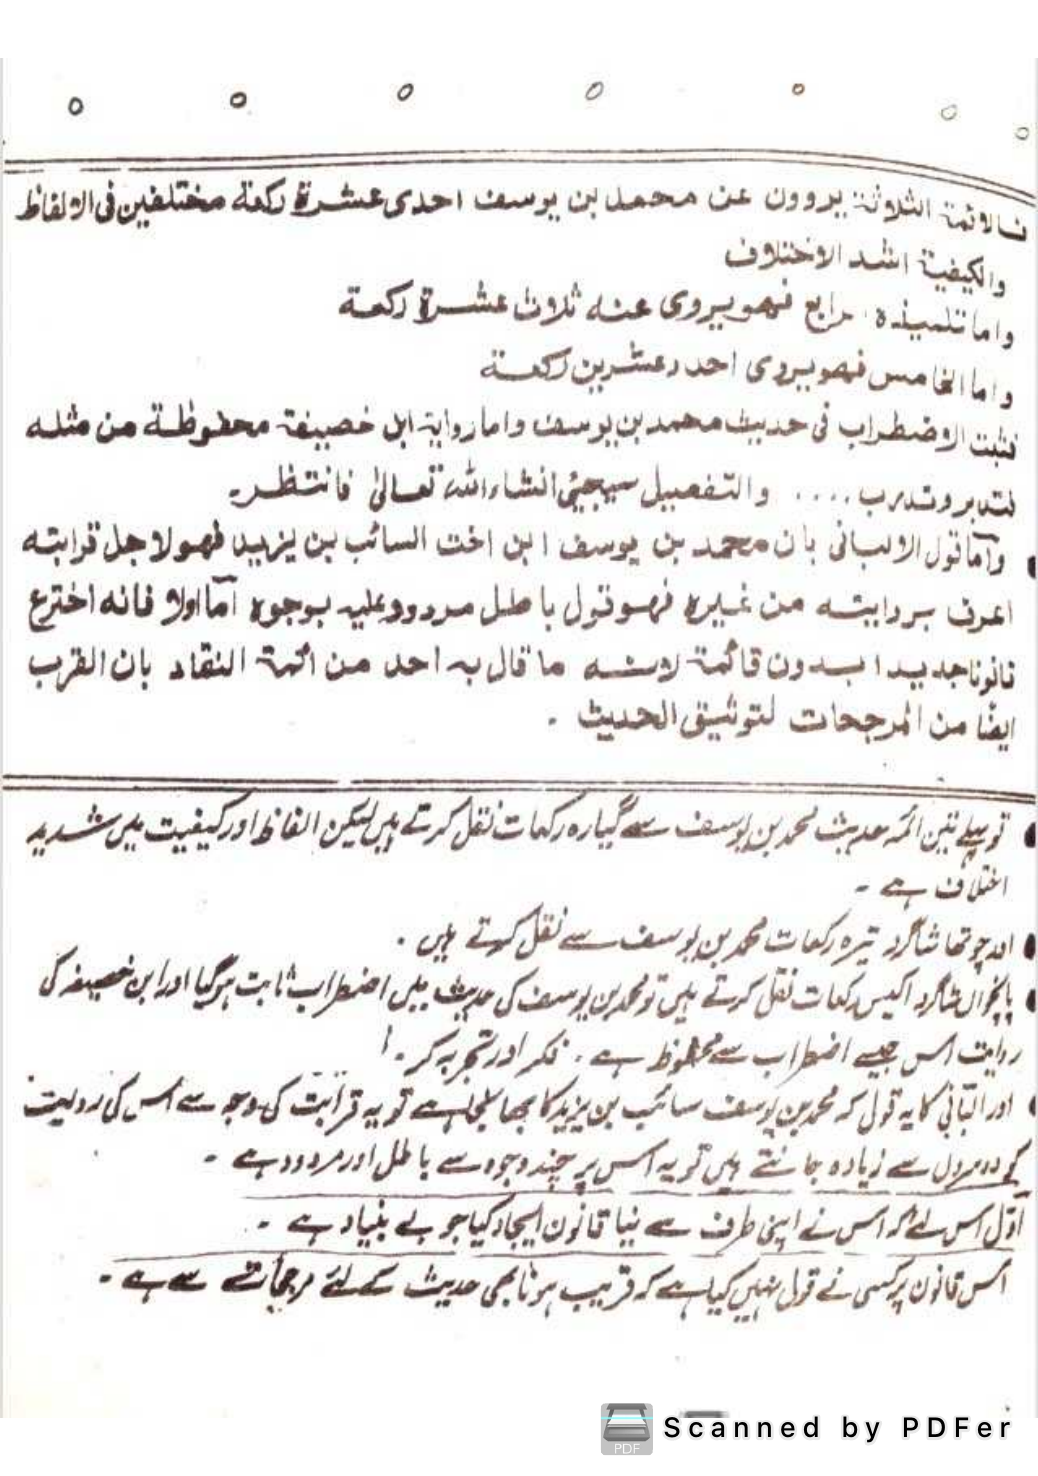 فالائمة الثلاثة يروون عن محمد بن يوسف احدى عشرة ركعة مختلفين فى الالفاظ
والكيفية اشد الاختلاف
واما تلميذه رابع فهو يروى عنه ثلاث عشرة ركعة
واما الخامس فهو يروى احد وعشرين ركعة
فثبت الاضطراب فى حديث محمد بن يوسف واما رواية ابن خصيفة محفوظة من مثله
فتدبر وتدرب .... والتفصيل سيجئ انشاء الله تعالىٰ فانتظر۔
وأما قول الالبانى بان محمد بن يوسف ابن اخت السائب بن يزيد فهو لاجل قرابته
اعرف بروايته من غيره فهو قول باطل مردود عليه بوجوه أما اولا فانه اخترع
قانونا جديدا بدون قائمة لانه ما قال به احد من ائمة النقاد بان القرب
ايضًا من المرجحات لتوثيق الحديث ۔
تو پہلے تین ائمہ حدیث محمد بن یوسف سے گیارہ رکعات نقل کرتے ہیں لیکن الفاظ اور کیفیت میں شدید
اختلاف ہے ۔
اور چوتھا شاگرد تیرہ رکعات محمد بن یوسف سے نقل کرتے ہیں ۔
پانچواں شاگرد اکیس رکعات نقل کرتے ہیں تو محمد بن یوسف کی حدیث میں اضطراب ثابت ہوگیا اور ابن خصیفہ کی
روایت اس جیسے اضطراب سے محفوظ ہے ۔ فکر اور تجربہ کر ۔!
اور البانی کا یہ قول کہ محمد بن یوسف سائب بن یزید کا بھانجا ہے تو یہ قرابت کی وجہ سے اس کی روایت
کو دوسروں سے زیادہ جانتے ہیں تو یہ اس پر چند وجوہ سے باطل اور مردود ہے ۔
اوّل اس لئے کہ اس نے اپنی طرف سے نیا قانون ایجاد کیا جو بے بنیاد ہے ۔
اس قانون پر کسی نے قول نہیں کیا ہے کہ قریب ہونا بھی حدیث کے لئے مرجحات سے ہے ۔
PDF
Scanned by PDFer